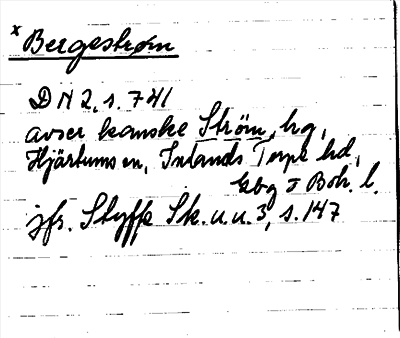 x Bergestrøm
DN 2, s. 741
avser kanske Ström, hg,
Hjärtums sn, Inlands Torpe hd,
Gbg o Boh. l.
jfr. Styffe Sk. u. u. 3, s. 147